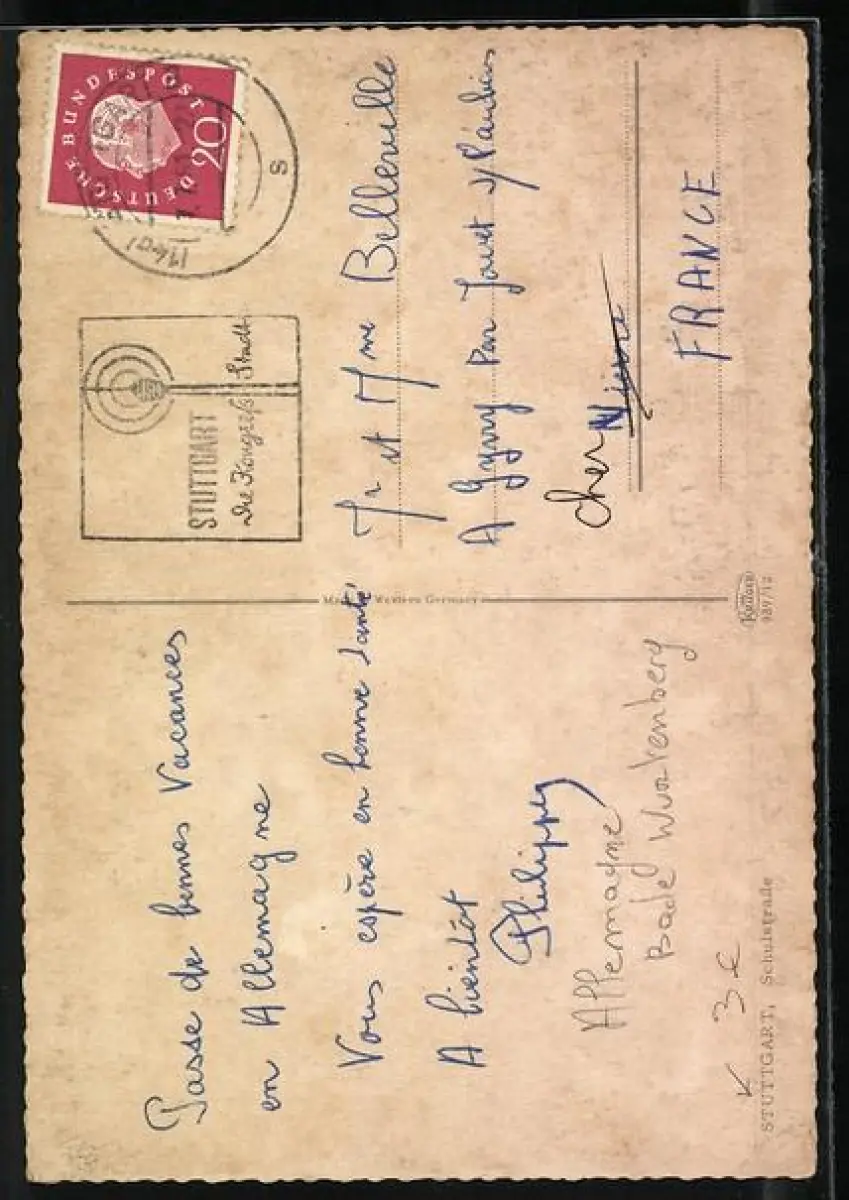 Passe de bonnes Vacances
en Allemagne
Vous espère en bonne santé
A bientôt
Philippe
Allemagne
Bade Wurtenberg
3€
STUTTGART, Schulstraße
Made in Western Germany
Krüger
989/12
DEUTSCHE BUNDESPOST
20
STUTTGART
s
STUTTGART
die Kongreß Stadt
Mr et Mme Belleville
A Gyvry par Jouet
Cher Nièvre
FRANCE